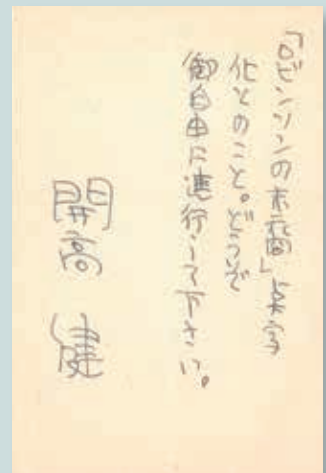 「ロビンソンの末裔」点字
化とのこと。どうぞ
御自由に進行して下さい。
開高 健